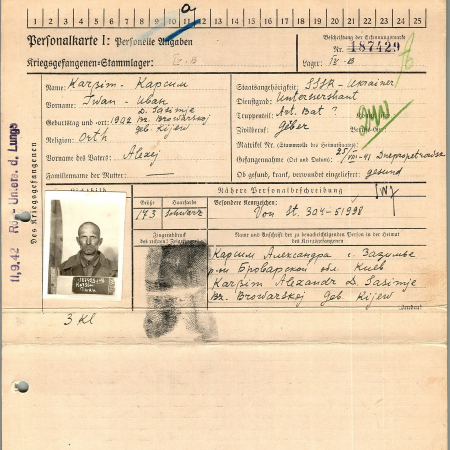 a
1 2 3 4 5 6 7 8 9 10 11 12 13 14 15 16 17 18 19 20 21 22 23 24 25
Personalkarte I: Personelle Angaben
Kriegsgefangenen-Stammlager: IV-B
Beschriftung der Erkennungsmarke
Nr. 187429
Lager: IV-B
Des Kriegsgefangenen
Name: Karzim - Карзим
Vorname: Iwan - Иван
Geburtstag und -ort: 1902 D. Sasimje Bz. Browarskoj geb. Kijew
Religion: Orth
Vorname des Vaters: Alexej
Familienname der Mutter:
Staatsangehörigkeit: SSSR - Ukrainer
Dienstgrad: Untersershant
Truppenteil: Art. Bat ?
Zivilberuf:
Matrikel Nr. (Stammrolle des Heimatstaates):
Gefangennahme (Ort und Datum): 25/VIII-41 Dnepropetrowsk
Ob gesund, krank, verwundet eingeliefert: gesund
Lichtbild
Nähere Personalbeschreibung
Größe
Haarfarbe
Besondere Kennzeichen:
173
schwarz
Von St. 304-51998
Fingerabdruck
des rechten Zeigefingers
Name und Anschrift der zu benachrichtigenden Person in der Heimat
des Kriegsgefangenen
Карзим Александра с. Зазимье
р-он Броварской обл. Киев
Karzim Alexandr D. Sasimje
Bz. Browarskoj geb. Kijew
3 Kl
II,9.42